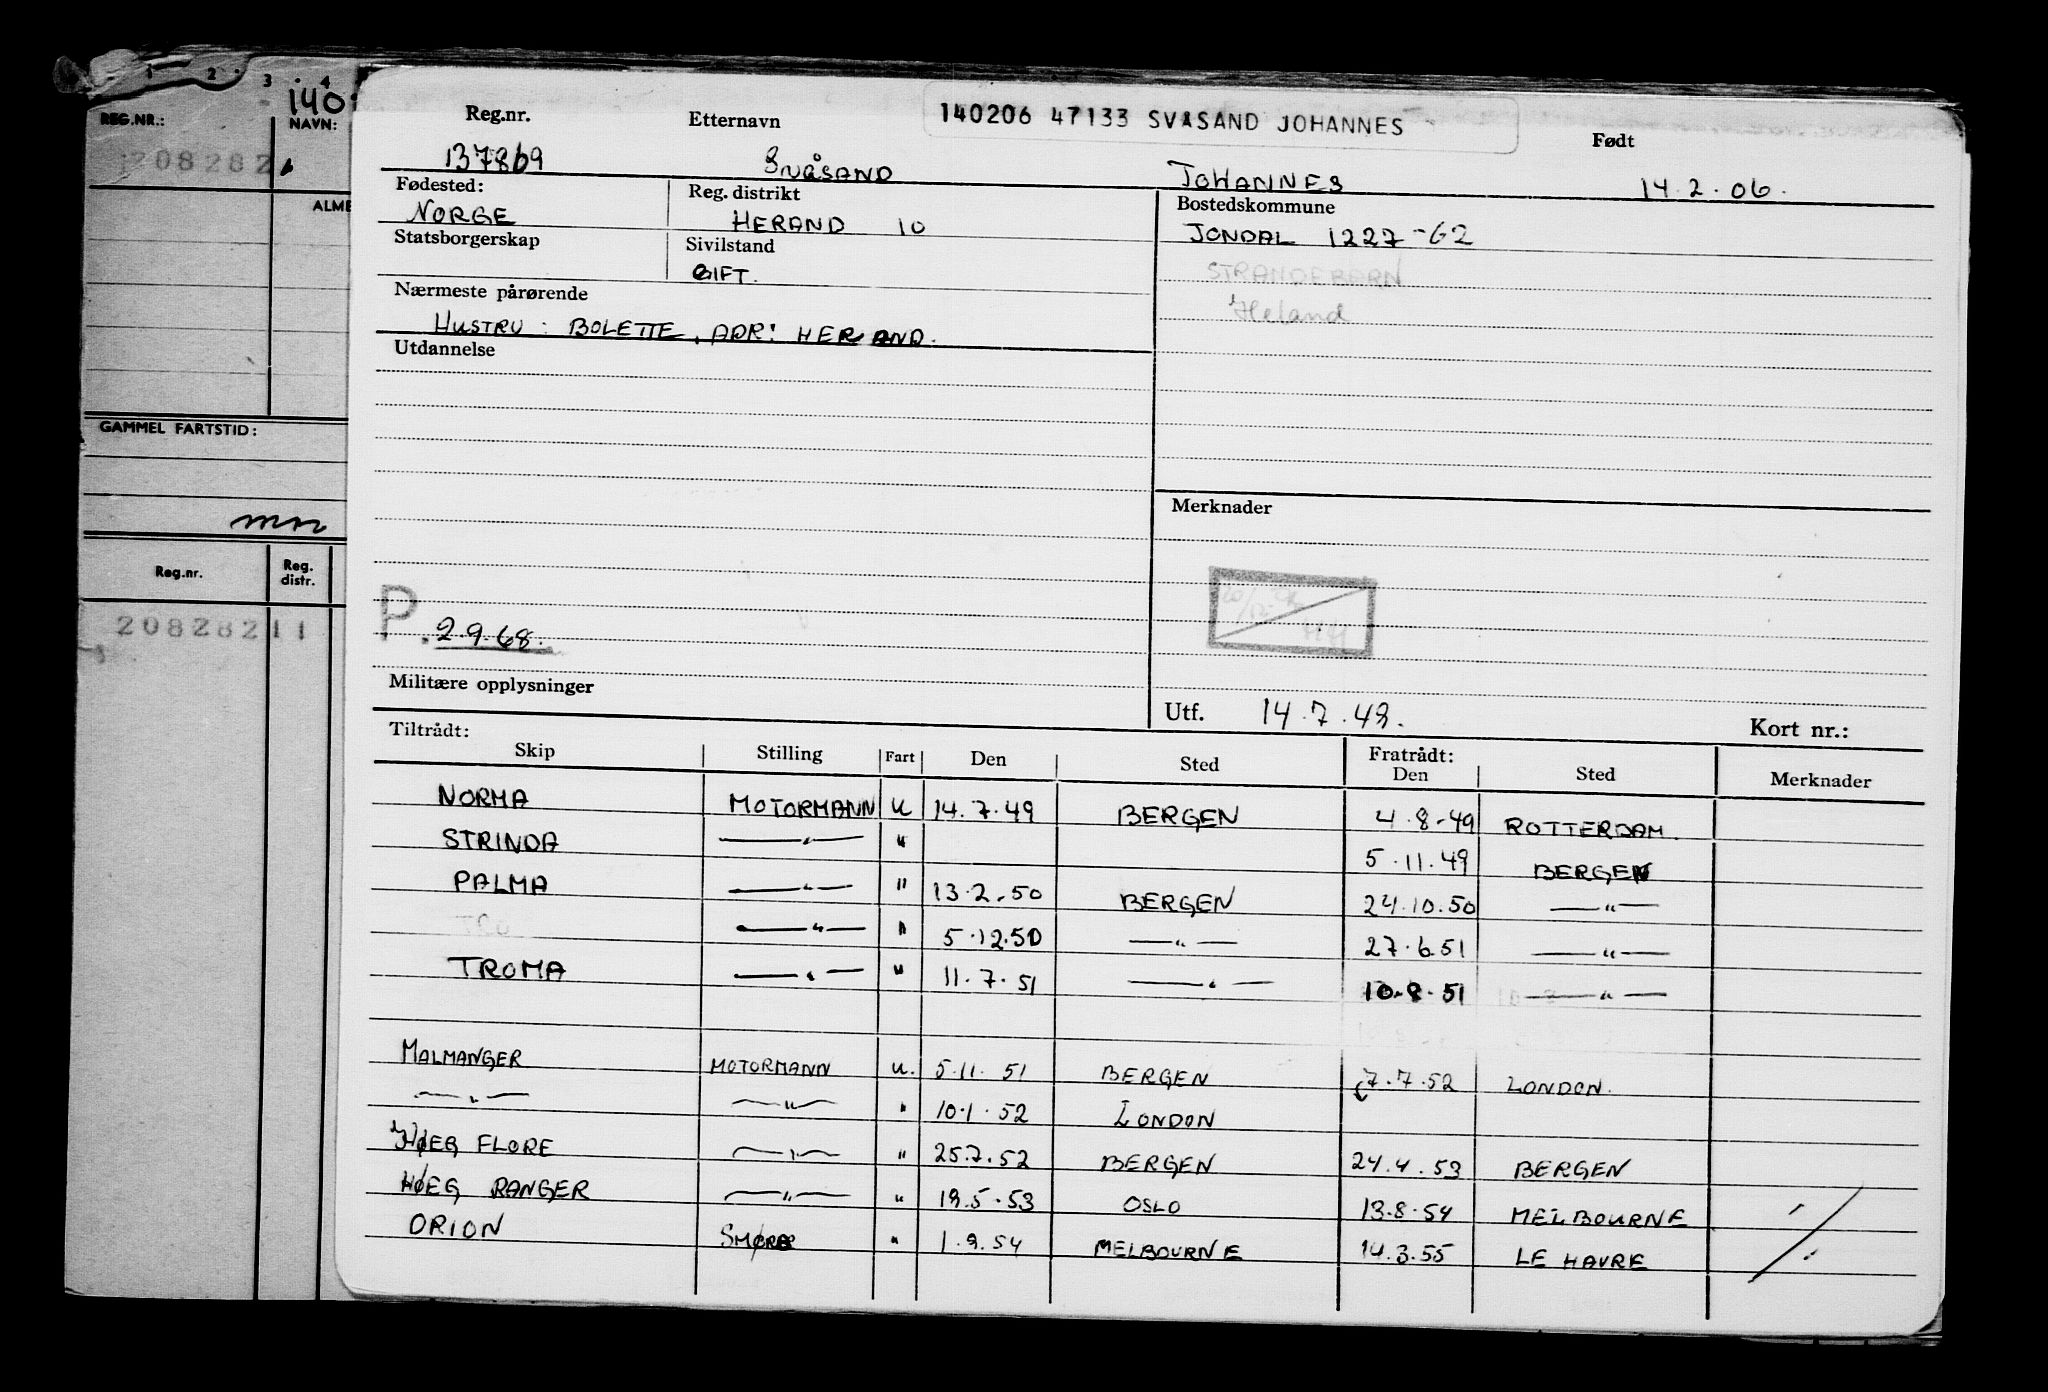 1 2 3 4
140
REG.NR.: NAVN:
208282
ALME
GAMMEL FARTSTID:
Reg.nr. Reg. distr.
20828211
140206 47133 SVÅSAND JOHANNES
Reg.nr. Etternavn Født
137869 SVÅSAND JOHANNES 14.2.06.
Fødested: Reg. distrikt Bostedskommune
NORGE HERAND 10 JONDAL 1227-62
Statsborgerskap Sivilstand
GIFT.
STRANDEBARN
Heland
Nærmeste pårørende
HUSTRU: BOLETTE, ADR: HERAND.
Utdannelse
Merknader
P. 2.9.68.
Militære opplysninger
Utf. 14.7.49. Kort nr.:
Tiltrådt: Fratrådt:
Skip Stilling Fart Den Sted Den Sted Merknader
NORMA MOTORMANN U 14.7.49 BERGEN 4.8-49 ROTTERDAM.
STRINDA —"— " 5.11.49 BERGEN
PALMA —"— " 13.2.50 BERGEN 24.10.50 —"—
—"— " 5.12.50 —"— 27.6.51 —"—
TROMA —"— " 11.7.51 —"— 10.8.51 —"—
MALMANGER MOTORMANN U. 5.11.51 BERGEN 7.7.52 LONDON.
—"— —"— " 10.1.52 LONDON
HØEG FLORE —"— " 25.7.52 BERGEN 24.4.53 BERGEN
HØEG RANGER —"— " 19.5.53 OSLO 13.8.54 MELBOURNE "
ORION SMØRER " 1.9.54 MELBOURNE 14.3.55 LE HAVRE "